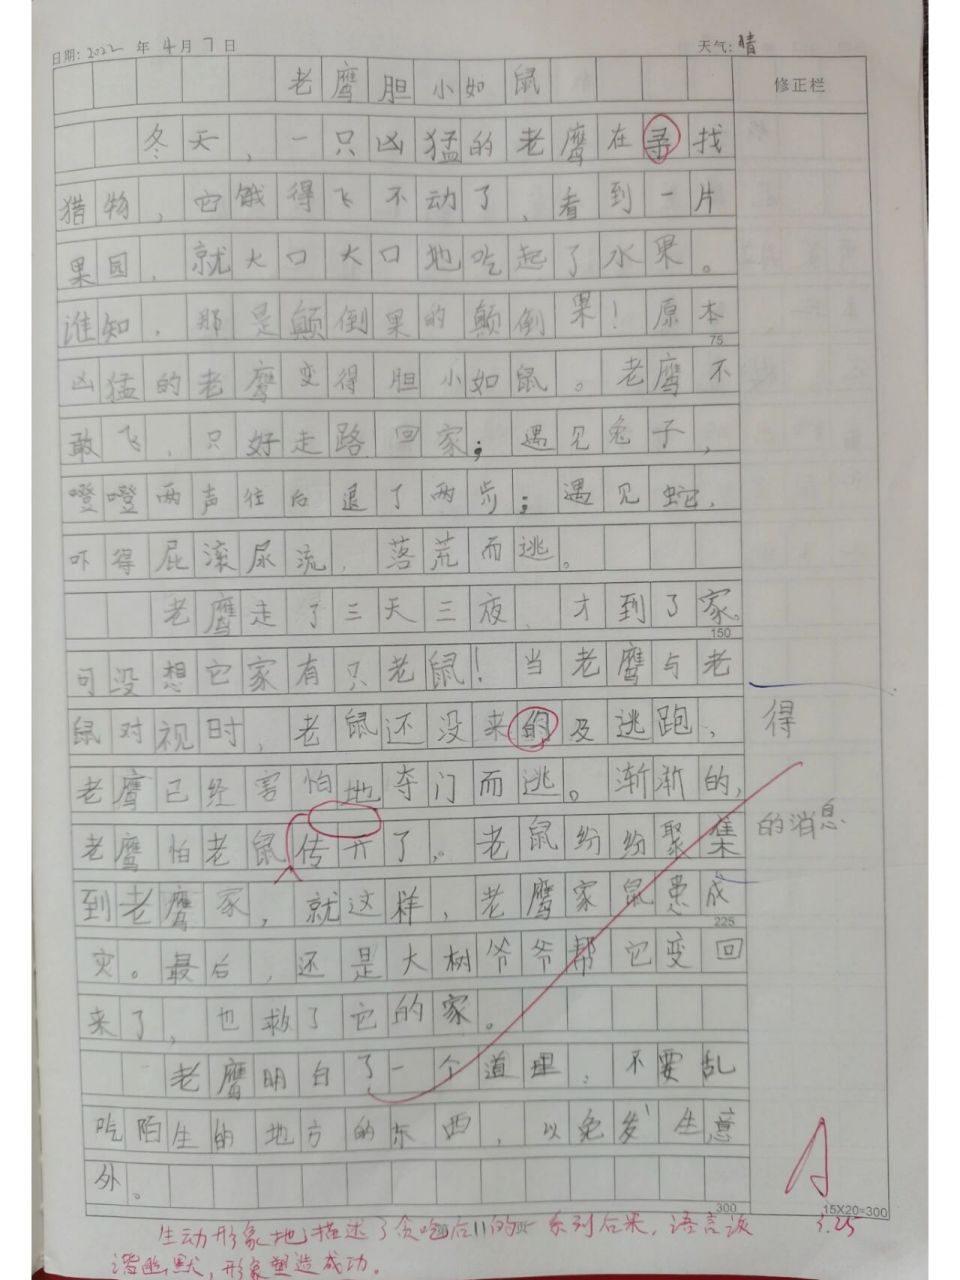 日期: 2022 年 4 月 7 日 天气: 晴
老鹰胆小如鼠
修正栏
冬天,一只凶猛的老鹰在寻找
猎物,它饿得飞不动了,看到一片
果园,就大口大口地吃起了水果。
谁知,那是颠倒果的颠倒果!原本
75
凶猛的老鹰变得胆小如鼠。老鹰不
敢飞,只好走路回家;遇见兔子,
噔噔两声往后退了两步;遇见蛇,
吓得屁滚尿流,落荒而逃。
老鹰走了三天三夜,才到了家。
150
可没想它家有只老鼠!当老鹰与老
鼠对视时,老鼠还没来的及逃跑,
得
老鹰已经害怕地夺门而逃。渐渐的,
老鹰怕老鼠传开了,。老鼠纷纷聚集
的消息
到老鹰家,就这样,老鹰家鼠患成
225
灾。最后,还是大树爷爷帮它变回
来了,也救了它的家。
老鹰明白了一个道理:不要乱
吃陌生的地方的东西,以免发生意
外。
A
300
15X20=300
生动形象地描述了贪吃后的一系列后果,语言诙
谐幽默,形象塑造成功。